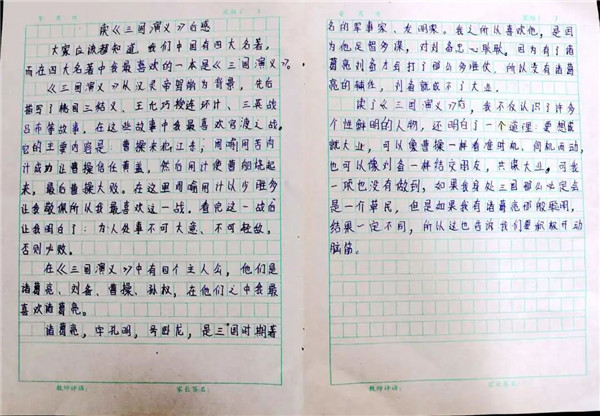 读《三国演义》有感
大家应该都知道,我们中国有四大名著,
而在四大名著中我最喜欢的一本是《三国演义》。
《三国演义》从汉灵帝登基为背景,先后
描写了桃园三结义、王允巧授连环计、三英战
吕布等故事,在这些故事中我最喜欢官渡之战。
它的主要内容是:曹操来犯江东;周瑜用苦肉
计成功让曹操信任黄盖,然后用计使曹船烧起
来,最后曹操大败。在这里周瑜用计以少胜多
让我敬佩所以我最喜欢这一战。看完这一战后
让我明白了:为人处事不可大意、不可轻敌,
否则必败。
在《三国演义》中有四个主人公,他们是
诸葛亮、刘备、曹操、孙权,在他们之中我最
喜欢诸葛亮。
诸葛亮,字孔明,号卧龙,是三国时期著
名的军事家、发明家。我之所以喜欢他,是因
为他足智多谋,对刘备忠心耿耿。因为有了诸
葛亮刘备才会打了那么多胜仗,所以没有诸葛
亮的辅佐,刘备就成不了大业。
读了《三国演义》后,我不仅认识了许多
个性鲜明的人物,还明白了一个道理:要想成
就大业,可以像曹操一样看准时机、伺机而动,
也可以像刘备一样结交朋友,共谋大业。可我
一项也没有做到,如果我身处三国那么必定会
是一个草民,但是如果我有诸葛亮那般聪明,
结果一定不同,所以这也告诉我们要积极开动
脑筋。
教师评语:
家长签名:
教师评语:
家长签名: